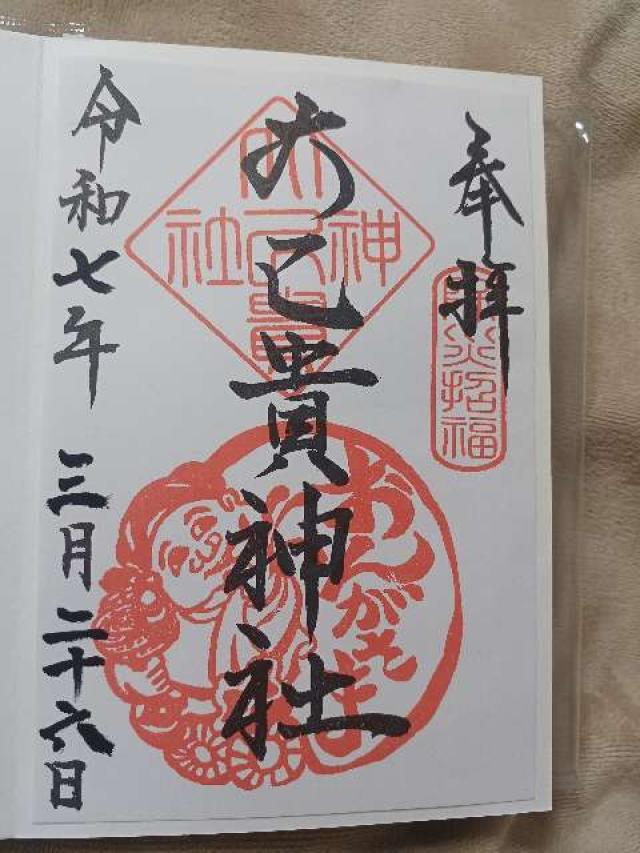 奉拝
除災招福
大己貴神社
大己貴神社
おんがさま
令和七年 三月二十六日